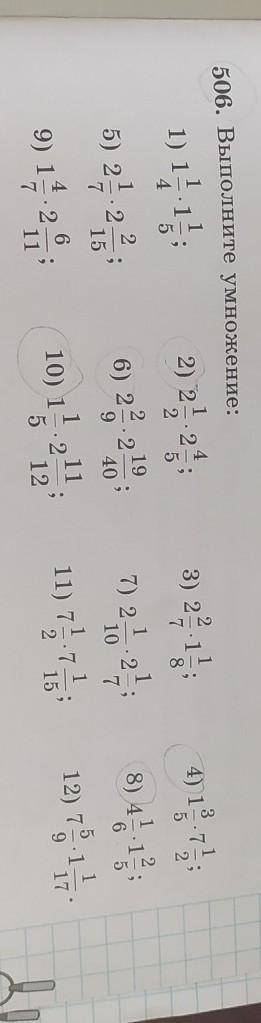 506. Выполните умножение:
1) 1 1/4 · 1 1/5; 2) 2 1/2 · 2 4/5; 3) 2 2/7 · 1 1/8; 4) 1 3/5 · 7 1/2;
5) 2 1/7 · 2 2/15; 6) 2 2/9 · 2 19/40; 7) 2 1/10 · 2 1/7; 8) 4 1/6 · 1 2/5;
9) 1 4/7 · 2 6/11; 10) 1 1/5 · 2 11/12; 11) 7 1/2 · 7 1/15; 12) 7 5/9 · 1 1/17.